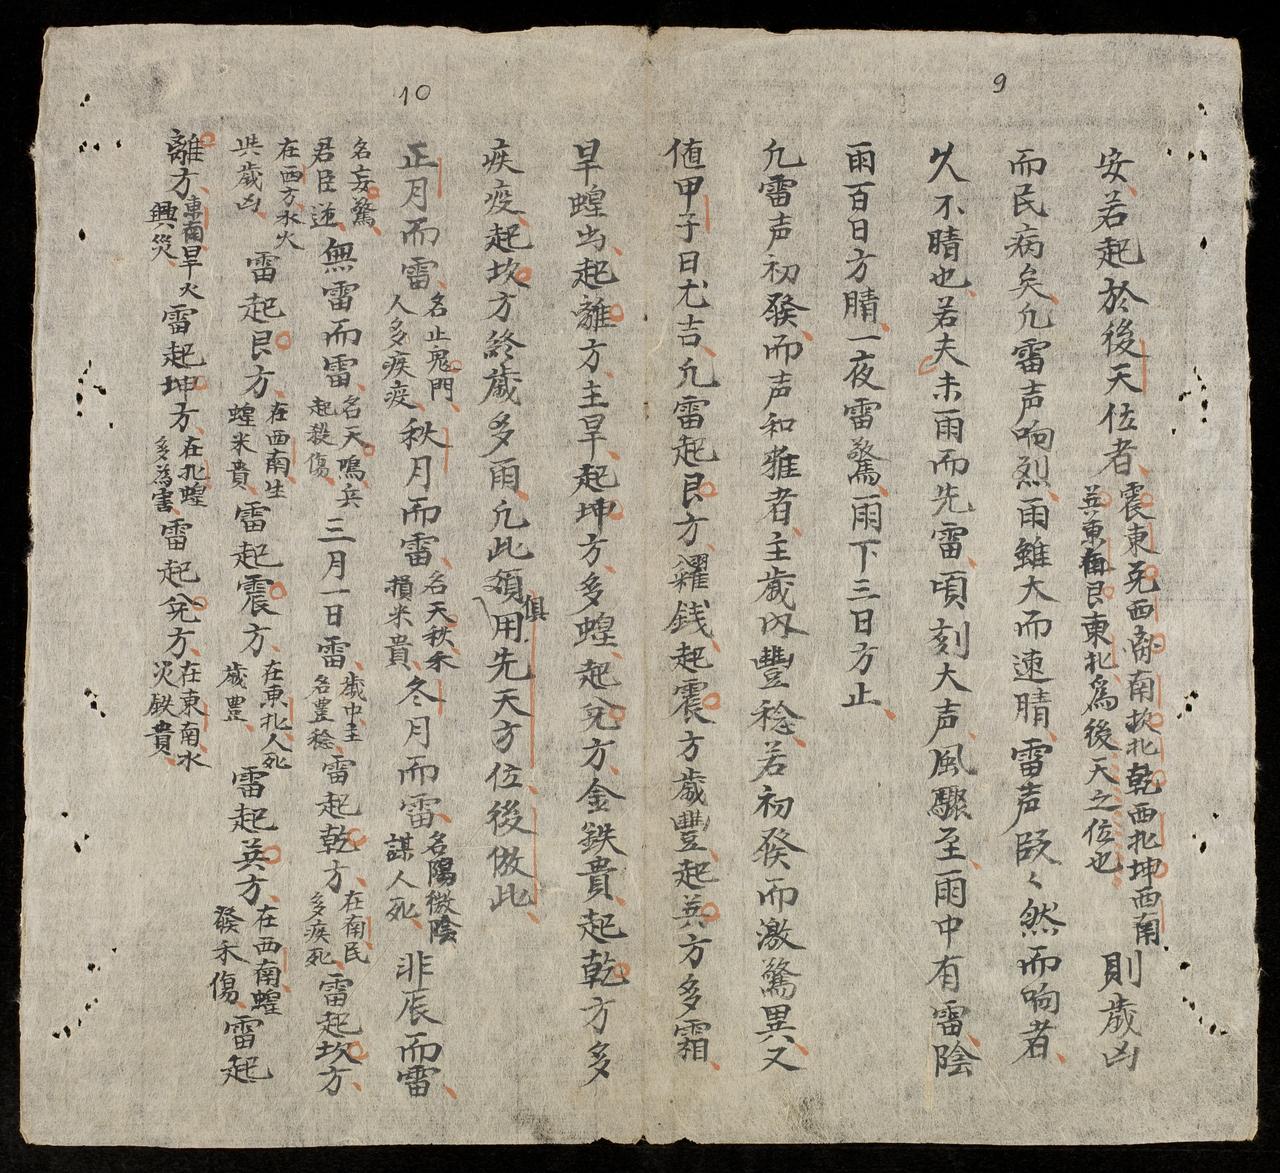 9
安若起於後天位者震東兌西離南坎北乾西北坤西南巽東南艮東北為後天之位也則歲凶
而民病矣凢雷声响烈雨雖大而速晴雷声殴々然而响者
久不晴也若夫未雨而先雷頃刻大声風驟至雨中有雷陰
雨百日方晴一夜雷驚雨下三日方止
凢雷声初發而声和雅者主歲內豐稔若初發而激驚異又
値甲子日尤吉凢雷起艮方糴錢起震方歲豐起巽方多霜
旱蝗出起離方主旱起坤方多蝗起兌方金鉄貴起乾方多
10
疾疫起坎方終歲多雨凢此須俱用先天方位後倣此
正月而雷名止鬼門人多疾疫秋月而雷名天秋禾損米貴冬月而雷名陽微陰謀人死非辰而雷
名妄驚君臣逆無雷而雷名天鳴兵起殺傷三月一日雷歲中主名豊稔雷起乾方在南民多疾死雷起坎方
在西方水火其歲凶雷起艮方在西南生蝗米貴雷起震方在東北人死歲豊雷起巽方在西南蝗發禾傷雷起
離方東南旱火興災雷起坤方在北蝗多為害雷起兌方在東南水災鉄貴